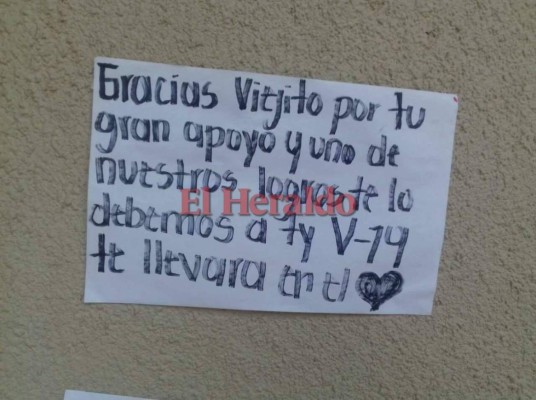 Gracias Viejito por tu
gran apoyo y uno de
nuestros logros te lo
El Heraldo
debemos a ty V-14
te llevara en el